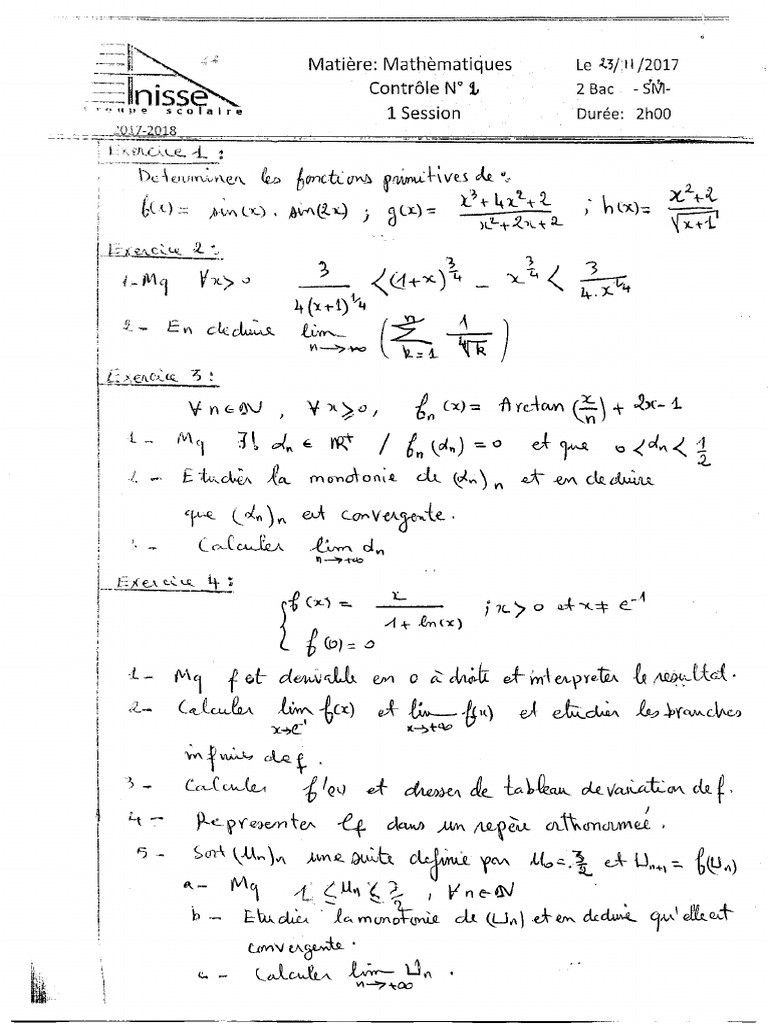 Matière: Mathèmatiques
Contrôle N° 1
1 Session
Le 23/11/2017
2 Bac -SM-
Durée: 2h00
Anisse
Groupe scolaire
2017-2018
Exercice 1 :
Determiner les fonctions primitives de :
f(x) = sin(x) . sin(2x) ; g(x) = (x³+4x²+2)/(x²+2x+2) ; h(x) = (x²+2)/√(x+1)
Exercice 2 :
1- Mq ∀x>0 3/(4(x+1)^(1/4)) < (1+x)^(3/4) - x^(3/4) < 3/(4.x^(1/4))
2- En deduire lim n→+∞ (∑ k=1 n 1/⁴√k)
Exercice 3 :
∀n∈IN, ∀x≥0, fn(x) = Arctan(x/n) + 2x-1
1- Mq ∃! αn ∈ IR⁺ / fn(αn) = 0 et que 0<αn<1/2
2- Etudier la monotonie de (αn)n et en deduire
que (αn)n est convergente.
3- Calculer lim n→+∞ αn
Exercice 4 :
{ f(x) = x/(1+ln(x)) ; x>0 et x≠e⁻¹
f(0) = 0
1- Mq f est derivable en 0 à droite et interpreter le resultat.
2- Calculer lim x→e⁻¹ f(x) et lim x→+∞ f(x) et etudier les branches
infinies de f.
3- Calculer f'(x) et dresser de tableau de variation de f.
4- Representer Cf dans un repère orthonormeé.
5- Soit (Un)n une suite definie par U0 = 3/2 et Un+1 = f(Un)
a- Mq 1 ≤ Un ≤ 3/2, ∀n∈IN
b- Etudier la monotonie de (Un) et en deduire qu'elle est
convergente.
c- Calculer lim n→+∞ Un.